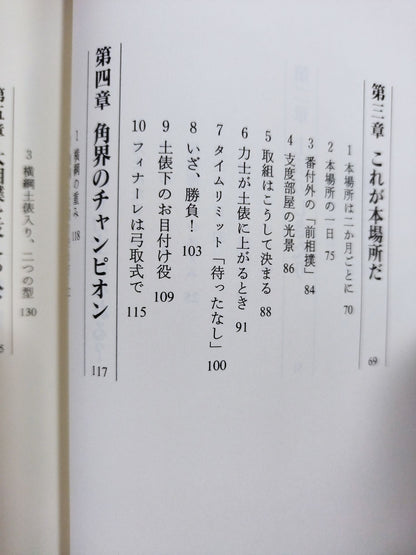 第三章 これが本場所だ 69
1 本場所は二か月ごとに 70
2 本場所の一日 75
3 番付外の「前相撲」 84
4 支度部屋の光景 86
5 取組はこうして決まる 88
6 力士が土俵に上がるとき 91
7 タイムリミット「待ったなし」 100
8 いざ、勝負! 103
9 土俵下のお目付け役 109
10 フィナーレは弓取式で 115
第四章 角界のチャンピオン 117
1 横綱の重み 118
3 横綱土俵入り、二つの型 130